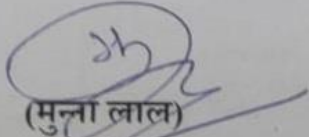 (मुन्ना लाल)